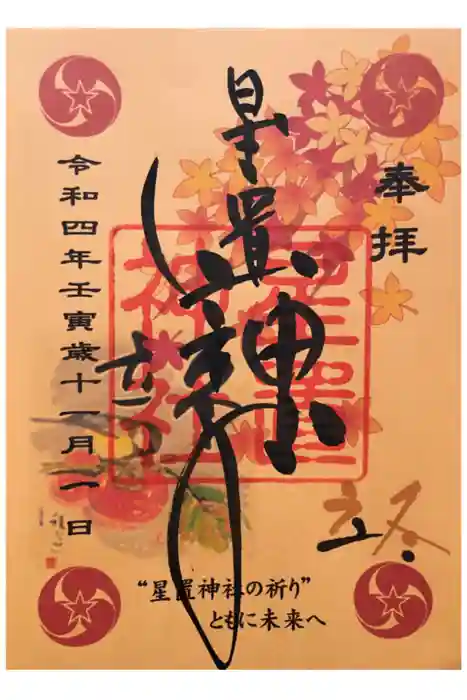 奉拝
星置神社
令和四年壬寅歳十一月一日
立冬
“星置神社の祈り”
ともに未来へ